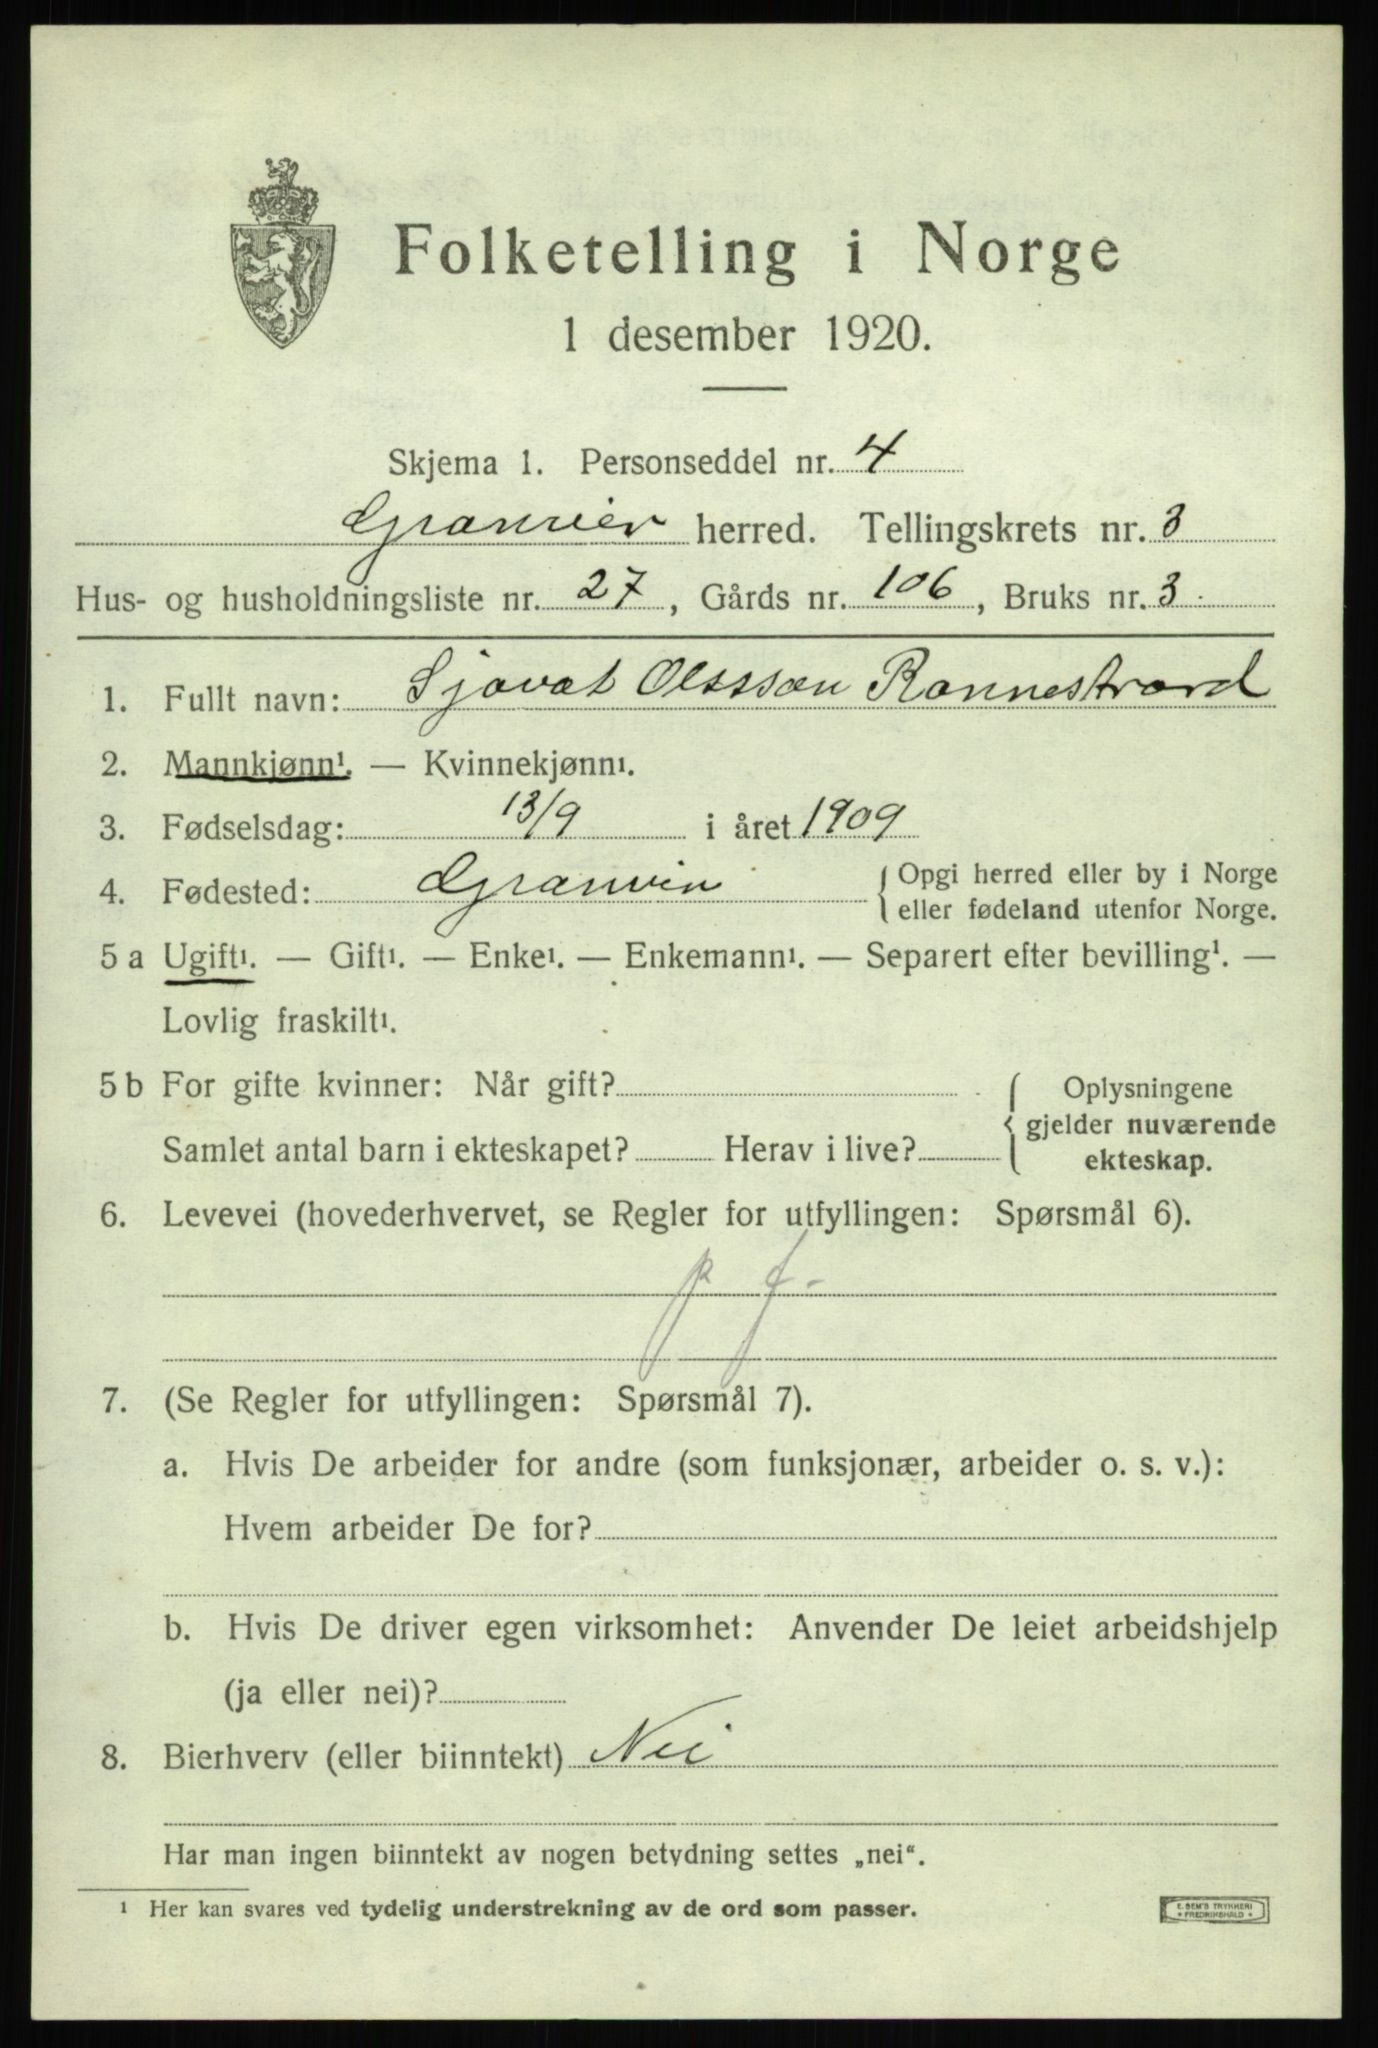 Folketelling i Norge
1 desember 1920.
Skjema 1. Personseddel nr. 4
Granvin herred. Tellingskrets nr. 3
Hus- og husholdningsliste nr. 27, Gårds nr. 106, Bruks nr. 3
1. Fullt navn: Sjovat Olssøn Rønnestrand
2. Mannkjønn¹. — Kvinnekjønn¹.
3. Fødselsdag: 13/9 i året 1909
4. Fødested: Granvin { Opgi herred eller by i Norge
eller fødeland utenfor Norge.
5 a Ugift¹. — Gift¹. — Enke¹. — Enkemann¹. — Separert efter bevilling¹. —
Lovlig fraskilt¹.
5 b For gifte kvinner: Når gift? { Oplysningene
gjelder nuværende
Samlet antal barn i ekteskapet? Herav i live? ekteskap.
6. Levevei (hovederhvervet, se Regler for utfyllingen: Spørsmål 6).
p f.
7. (Se Regler for utfyllingen: Spørsmål 7).
a. Hvis De arbeider for andre (som funksjonær, arbeider o. s. v.):
Hvem arbeider De for?
b. Hvis De driver egen virksomhet: Anvender De leiet arbeidshjelp
(ja eller nei)?
8. Bierhverv (eller biinntekt) Nei
Har man ingen biinntekt av nogen betydning settes „nei“.
¹ Her kan svares ved tydelig understrekning av de ord som passer.
E. SEM'S TRYKKERI
* FREDRIKSHALD *